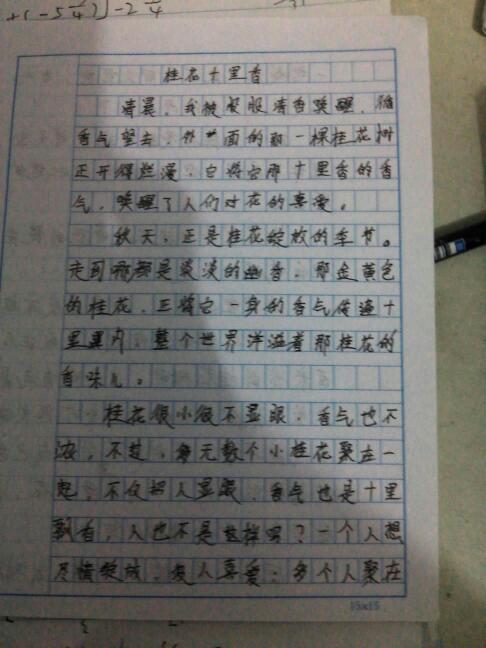 +(-5 1/4)]-2 1/4
桂花十里香
清晨，我被股股清香唤醒，循
香气望去，外面的那一棵桂花树
正开得烂漫，它将它那十里香的香
气，唤醒了人们对花的喜爱。
秋天，正是桂花绽放的季节。
走到哪都是淡淡的幽香，那金黄色
的桂花，正将它一身的香气传遍十
里里内，整个世界洋溢着那桂花的
香味儿。
桂花很小很不显眼，香气也不
浓，不过，当无数个小桂花聚在一
起，不仅招人显眼，香气也是十里
飘香，人也不是这样吗？一个人想
尽情绽放，爱人喜爱；多个人聚在
15x15